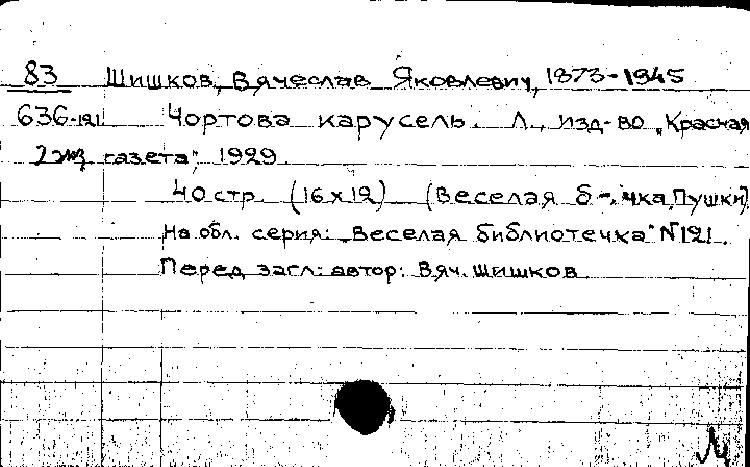 83 Шишков, Вячеслав Яковлевич, 1873-1945
636-121 Чортова карусель. Л., изд-во „Красная
2 экз газета", 1929.
40 стр. (16х12) (Веселая б-чка „Пушки")
На обл. серия: „Веселая библиотечка" №121.
Перед загл: автор: Вяч. Шишков.